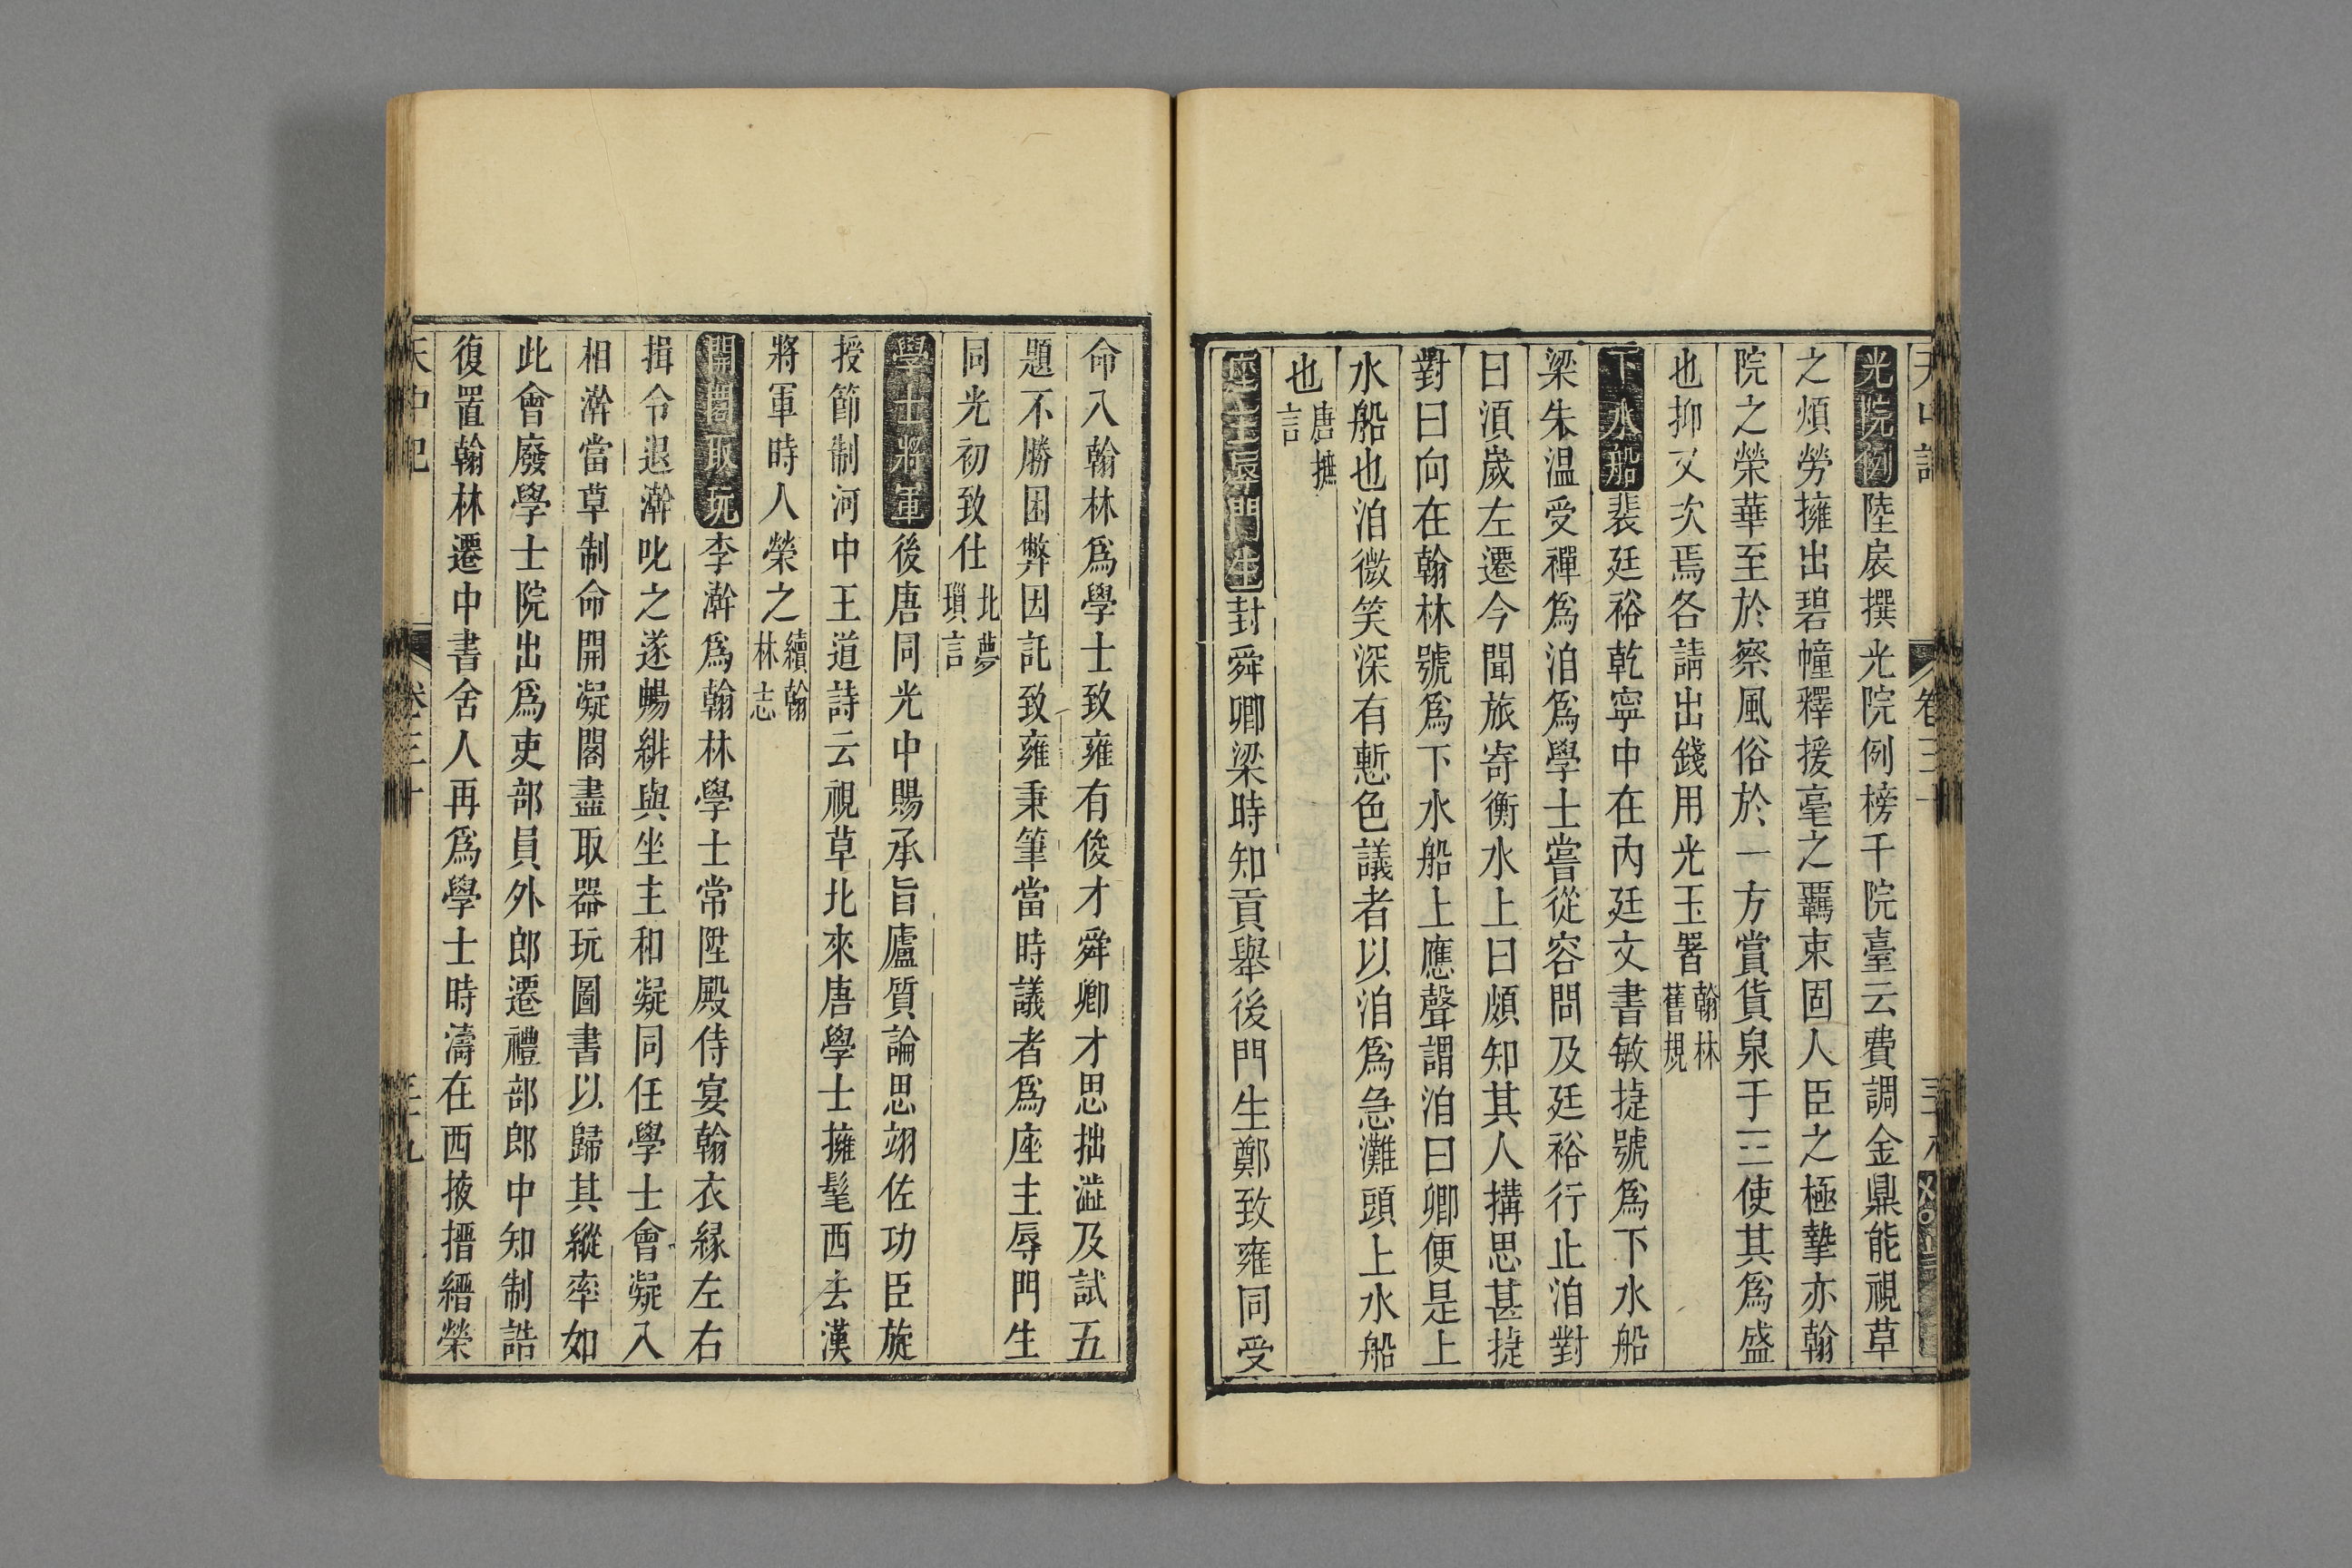 光院例陸扆撰光院例榜千院臺云費調金鼎能視草
之煩勞擁出碧幢釋援毫之羈束固人臣之極摯亦翰
院之榮華至於察風俗於一方賞貨泉于三使其爲盛
也抑又次焉各請出錢用光玉署翰林舊規
下水船裴廷裕乾寧中在內廷文書敏捷號爲下水船
梁朱温受禪爲洎爲學士嘗從容問及廷裕行止洎對
曰湏嵗左遷今聞旅寄衡水上曰頗知其人搆思甚捷
對曰向在翰林號爲下水船上應聲謂洎曰卿便是上
水船也洎微笑深有慙色議者以洎爲急灘頭上水船
也唐摭言
座主辱門生封舜卿梁時知貢舉後門生鄭致雍同受
命入翰林爲學士致雍有俊才舜卿才思拙澁及試五
題不勝困弊因託致雍秉筆當時議者爲座主辱門生
同光初致仕北夢瑣言
學士將軍後唐同光中賜承旨盧質論思翊佐功臣旋
授節制河中王道詩云視草北來唐學士擁髦西去漢
將軍時人榮之續翰林志
開閣取玩李澣爲翰林學士常陞殿侍宴翰衣緑左右
揖令退澣叱之遂暢緋與坐主和凝同任學士會凝入
相澣當草制命開凝閣盡取器玩圖書以歸其縱率如
此會廢學士院出爲吏部員外郎遷禮部郎中知制誥
復置翰林遷中書舍人再爲學士時濤在西掖搢縉榮
天中記 卷三十